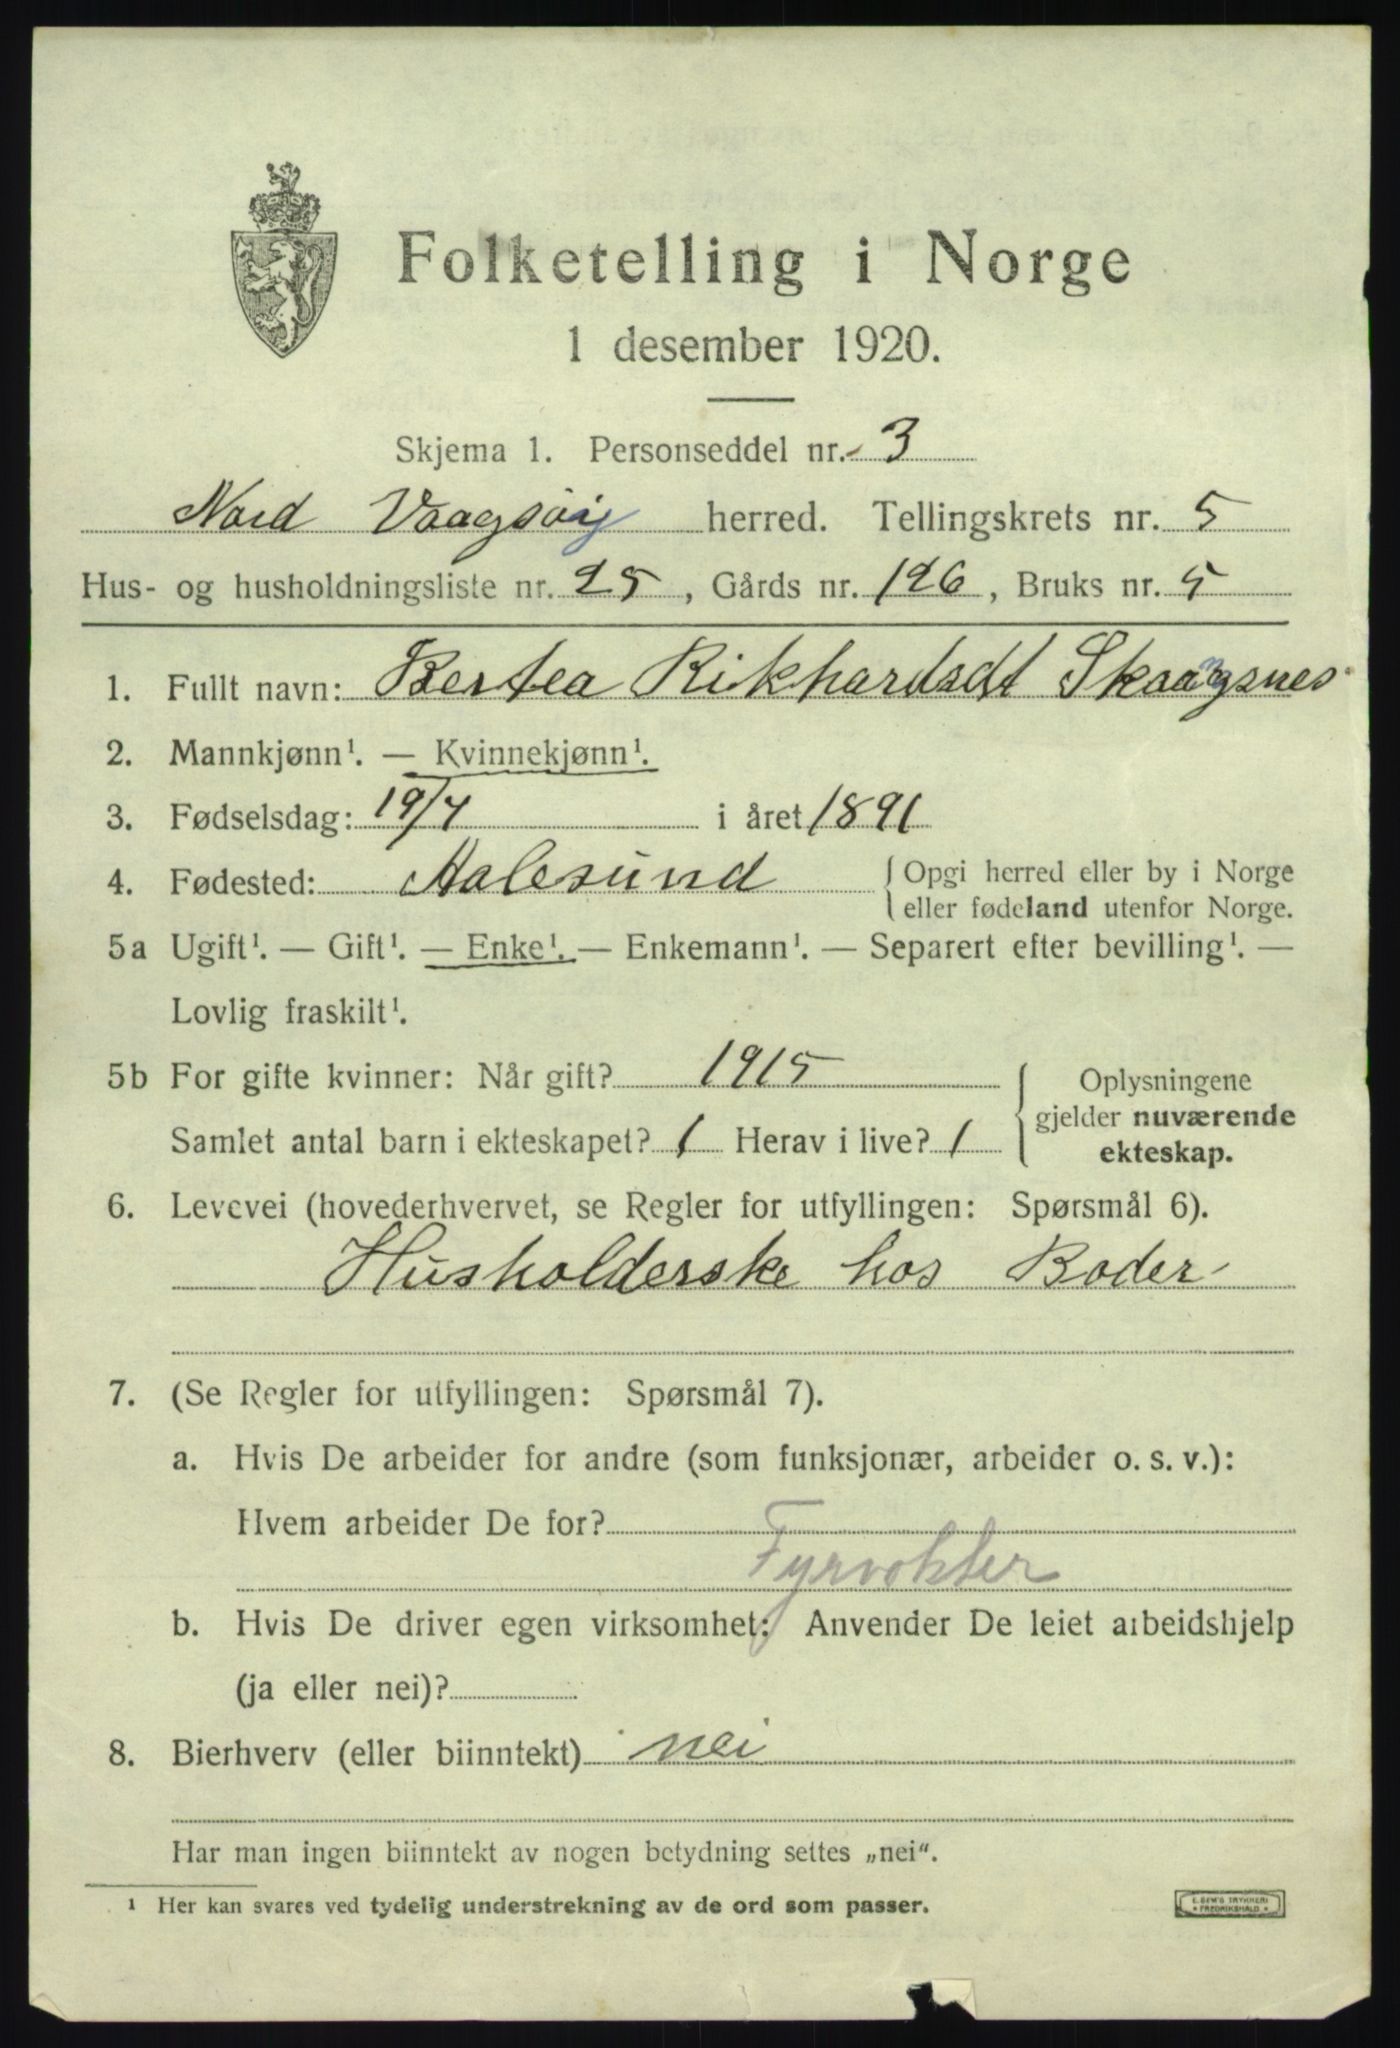 Folketelling i Norge
1 desember 1920.
Skjema 1. Personseddel nr. 3
Nord Vaagsøy herred. Tellingskrets nr. 5
Hus- og husholdningsliste nr. 25, Gårds nr. 126, Bruks nr. 5
1. Fullt navn: Bertea Rikhardsdt Skaangsnes
2. Mannkjønn¹. — Kvinnekjønn¹.
3. Fødselsdag: 19/7 i året 1891
4. Fødested: Aalesund { Opgi herred eller by i Norge
eller fødeland utenfor Norge.
5a Ugift¹. — Gift¹. — Enke¹. — Enkemann¹. — Separert efter bevilling¹. —
Lovlig fraskilt¹.
5b For gifte kvinner: Når gift? 1915 { Oplysningene
gjelder nuværende
Samlet antal barn i ekteskapet? 1 Herav i live? 1 ekteskap.
6. Levevei (hovederhvervet, se Regler for utfyllingen: Spørsmål 6).
Husholderske hos Boder
7. (Se Regler for utfyllingen: Spørsmål 7).
a. Hvis De arbeider for andre (som funksjonær, arbeider o. s. v.):
Hvem arbeider De for?
Fyrvokter
b. Hvis De driver egen virksomhet: Anvender De leiet arbeidshjelp
(ja eller nei)?
8. Bierhverv (eller biinntekt) nei
Har man ingen biinntekt av nogen betydning settes „nei“.
¹ Her kan svares ved tydelig understrekning av de ord som passer.
E. SEM'S TRYKKERI
* FREDRIKSHALD *